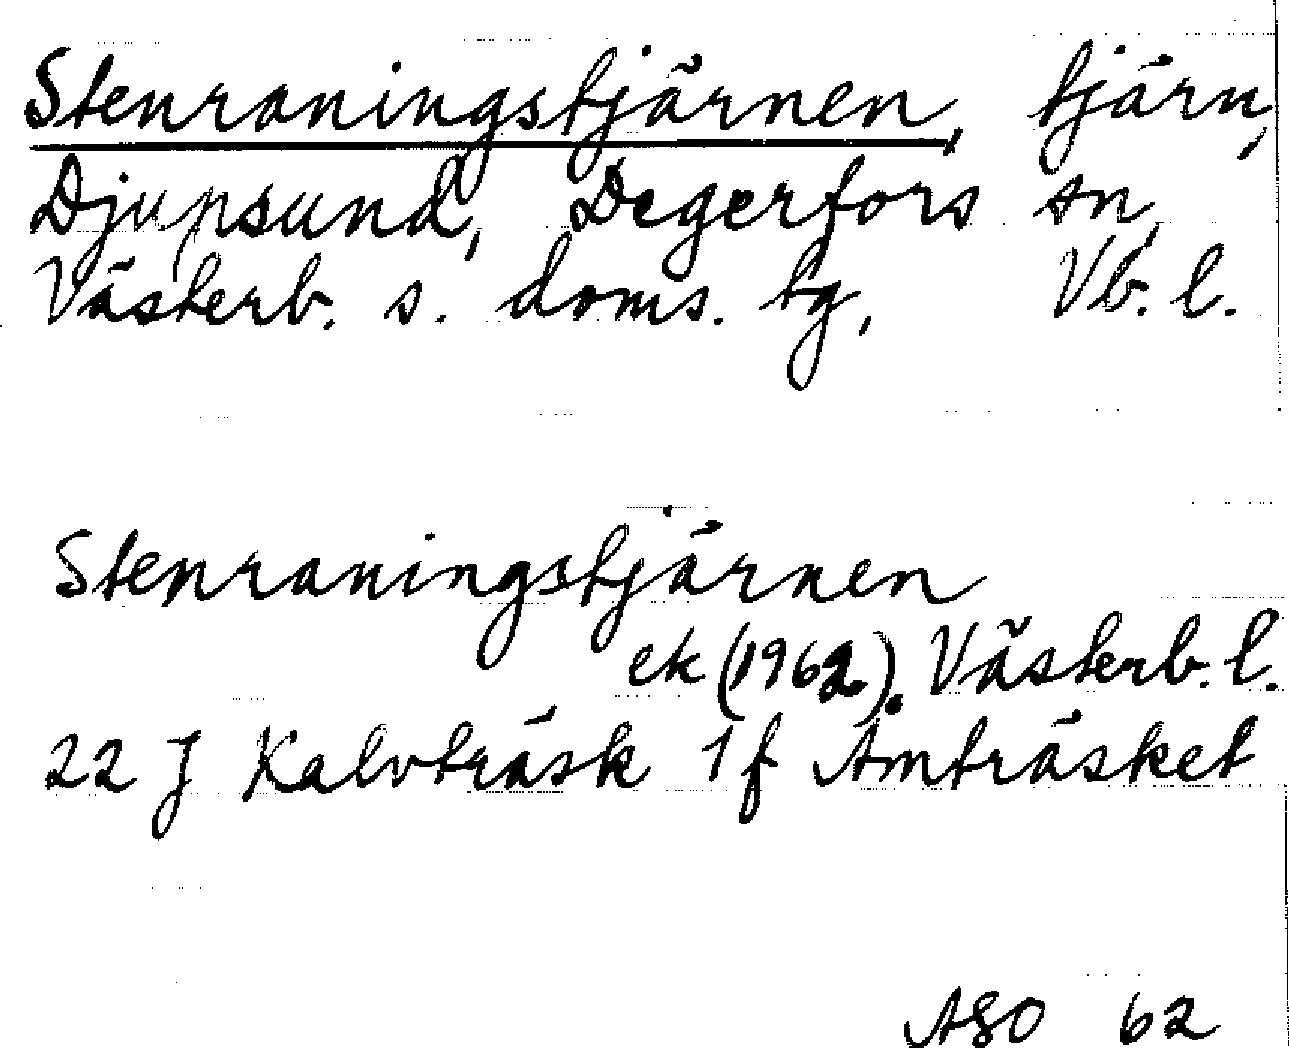 Stenraningstjärnen, tjärn,
Djupsund, Degerfors sn,
Västerb. s. doms. tg, Vb. l.
Stenraningstjärnen
ek (1962). Västerb. l.
22 J Kalvträsk 1 f Åmträsket
ASO 62